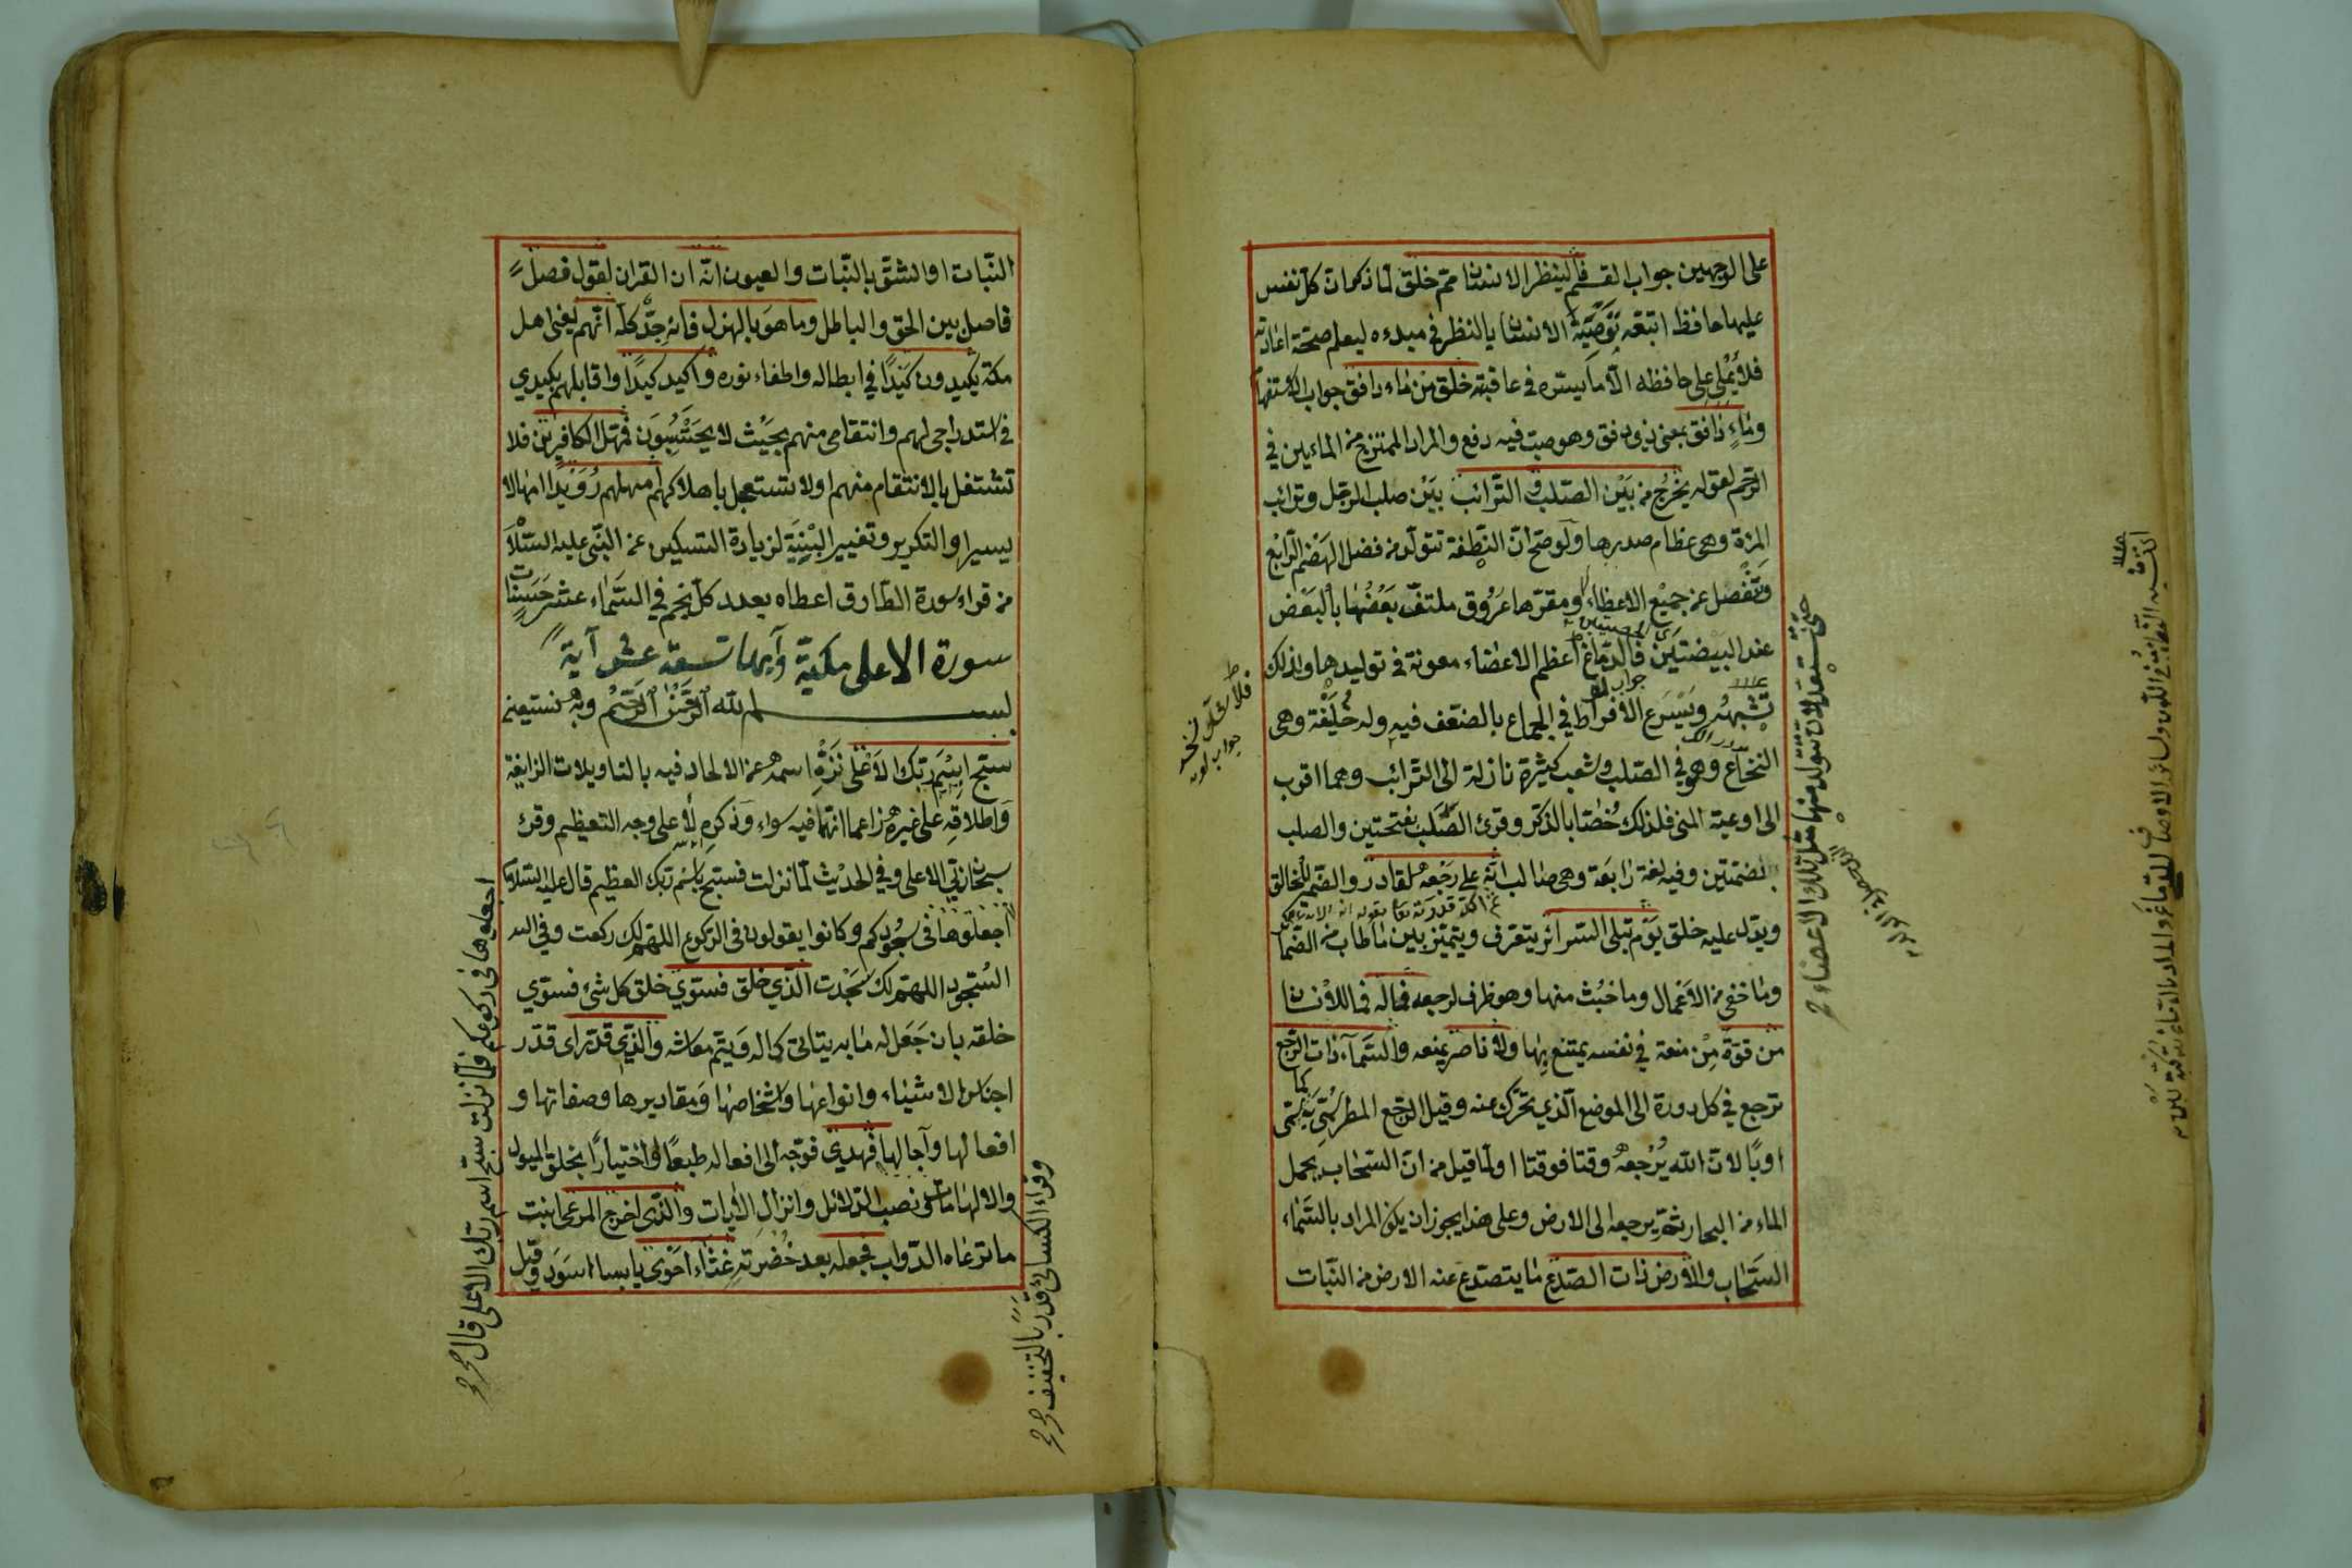 على الوجهين جواب القسم فلينظر الانسان مم خلق لما ذكر ان كل نفس
عليها حافظ اتبعه توصية الانسان بالنظر في مبدءه ليعلم صحة اعادته
فلا يملي على حافظه الا ما يسره في عاقبته خلق من ماء دافق جواب الاستفها
وماء دافق بمعنى ذي دفق وهو صب فيه دفع والمراد الممتزج من الماءين في
الرحم لقوله يخرج من بين الصلب والترائب بين صلب الرجل وترائب
المرءة وهي عظام صدرها ولو صح ان النطفة تتولد من فضل الهضم الرابع
وتنفصل عن جميع الاعظاء ومقرها عروق ملتف بعضها بالبعض
عند البيضتين فالدماغ اعظم الاعضاء معونة في توليدها ولذلك
تشبهه ويسرع الافراط في الجماع بالضعف فيه وله خليفة وهى
النخاع وهو في الصلب وشعب كثيرة نازلة الى الترائب وهما اقرب
الى اوعية المنى فلذلك خصا بالذكر وقرئ الصلب بفتحتين والصلب
بضمتين وفيه لغة رابعة وهى صالب انه على رجعه لقادر والضمير للخالق
ويدل عليه خلق يوم تبلى السرائر يتعرف ويتميز بين ما طاب من الضما
وما خفى من الاعمال وما خبث منها وهو ظرف لرجعه فما له فما للانسان
من قوة من منعة في نفسه يمتنع بها ولا ناصر يمنعه والسماء ذات الرجع
ترجع في كل دورة الى الموضع الذي تحرك عنه وقيل الرجع المطر سمى به كما سمى
اوبا لان الله يرجعه وقتا فوقتا او لما قيل من ان السحاب يحمل
الماء من البحار ثم يرجعه الى الارض وعلى هذا يجوز ان يكون المراد بالسماء
السحاب والارض ذات الصدع ما يتصدع عنه الارض من النبات
جواب لو
حتى تستعد لان تتولد منها مثل تلك الاعضاء صح
النبات او الشق بالنبات والعيون انه ان القران لقول فصل
فاصل بين الحق والباطل وما هو بالهزل فانه جد كله انهم يعنى اهل
مكة يكيدون كيدا في ابطاله واطفاء نوره واكيد كيدا واقابلهم بكيدي
في استدراجى لهم وانتقامى منهم بحيث لا يحتسبون فمهل الكافرين فلا
تشتغل بالانتقام منهم اولا تستعجل باهلاكهم امهلهم رويدا امهالا
يسيرا والتكرير وتغيير البنية لزيادة التسكين عن النبي عليه السلام
من قراء سورة الطارق اعطاه بعدد كل نجم في السماء عشر حسنات
سورة الاعلى مكية وآيها تسعة عشر آية
بسم الله الرحمن الرحيم وبه نستعين
سبح اسم ربك الاعلى نزه اسمه عن الالحاد فيه بالتاويلات الزايغة
واطلاقه على غيره زاعما انهما فيه سواء وذكره لا على وجه التعظيم وقرئ
سبحان ربي الاعلى وفي الحديث لما نزلت فسبح باسم ربك العظيم قال عليه السلام
اجعلوها فى سجودكم وكانوا يقولون فى الركوع اللهم لك ركعت وفي الس
السجود اللهم لك سجدت الذي خلق فسوي خلق كل شئ فسوي
خلقه بان جعل له ما به يتاتى كماله ويتم معاشه والذي قدر اى قدر
اجناس الاشياء وانواعها واشخاصها ومقاديرها وصفاتها و
افعالها وآجالها فهدي فوجه الى افعاله طبعا او اختيارا بخلق الميول
والالهامات ونصب الدلائل وانزال الايات والذى اخرج المرعى انبت
ما ترعاه الدواب فجعله بعد خضرته غثاء احوى يابسا اسود وقيل
اجعلوها فى ركوعكم فلما نزلت سبح اسم ربك الاعلى قال صح
وقراء الكسائى قدر بالتخفيف صح